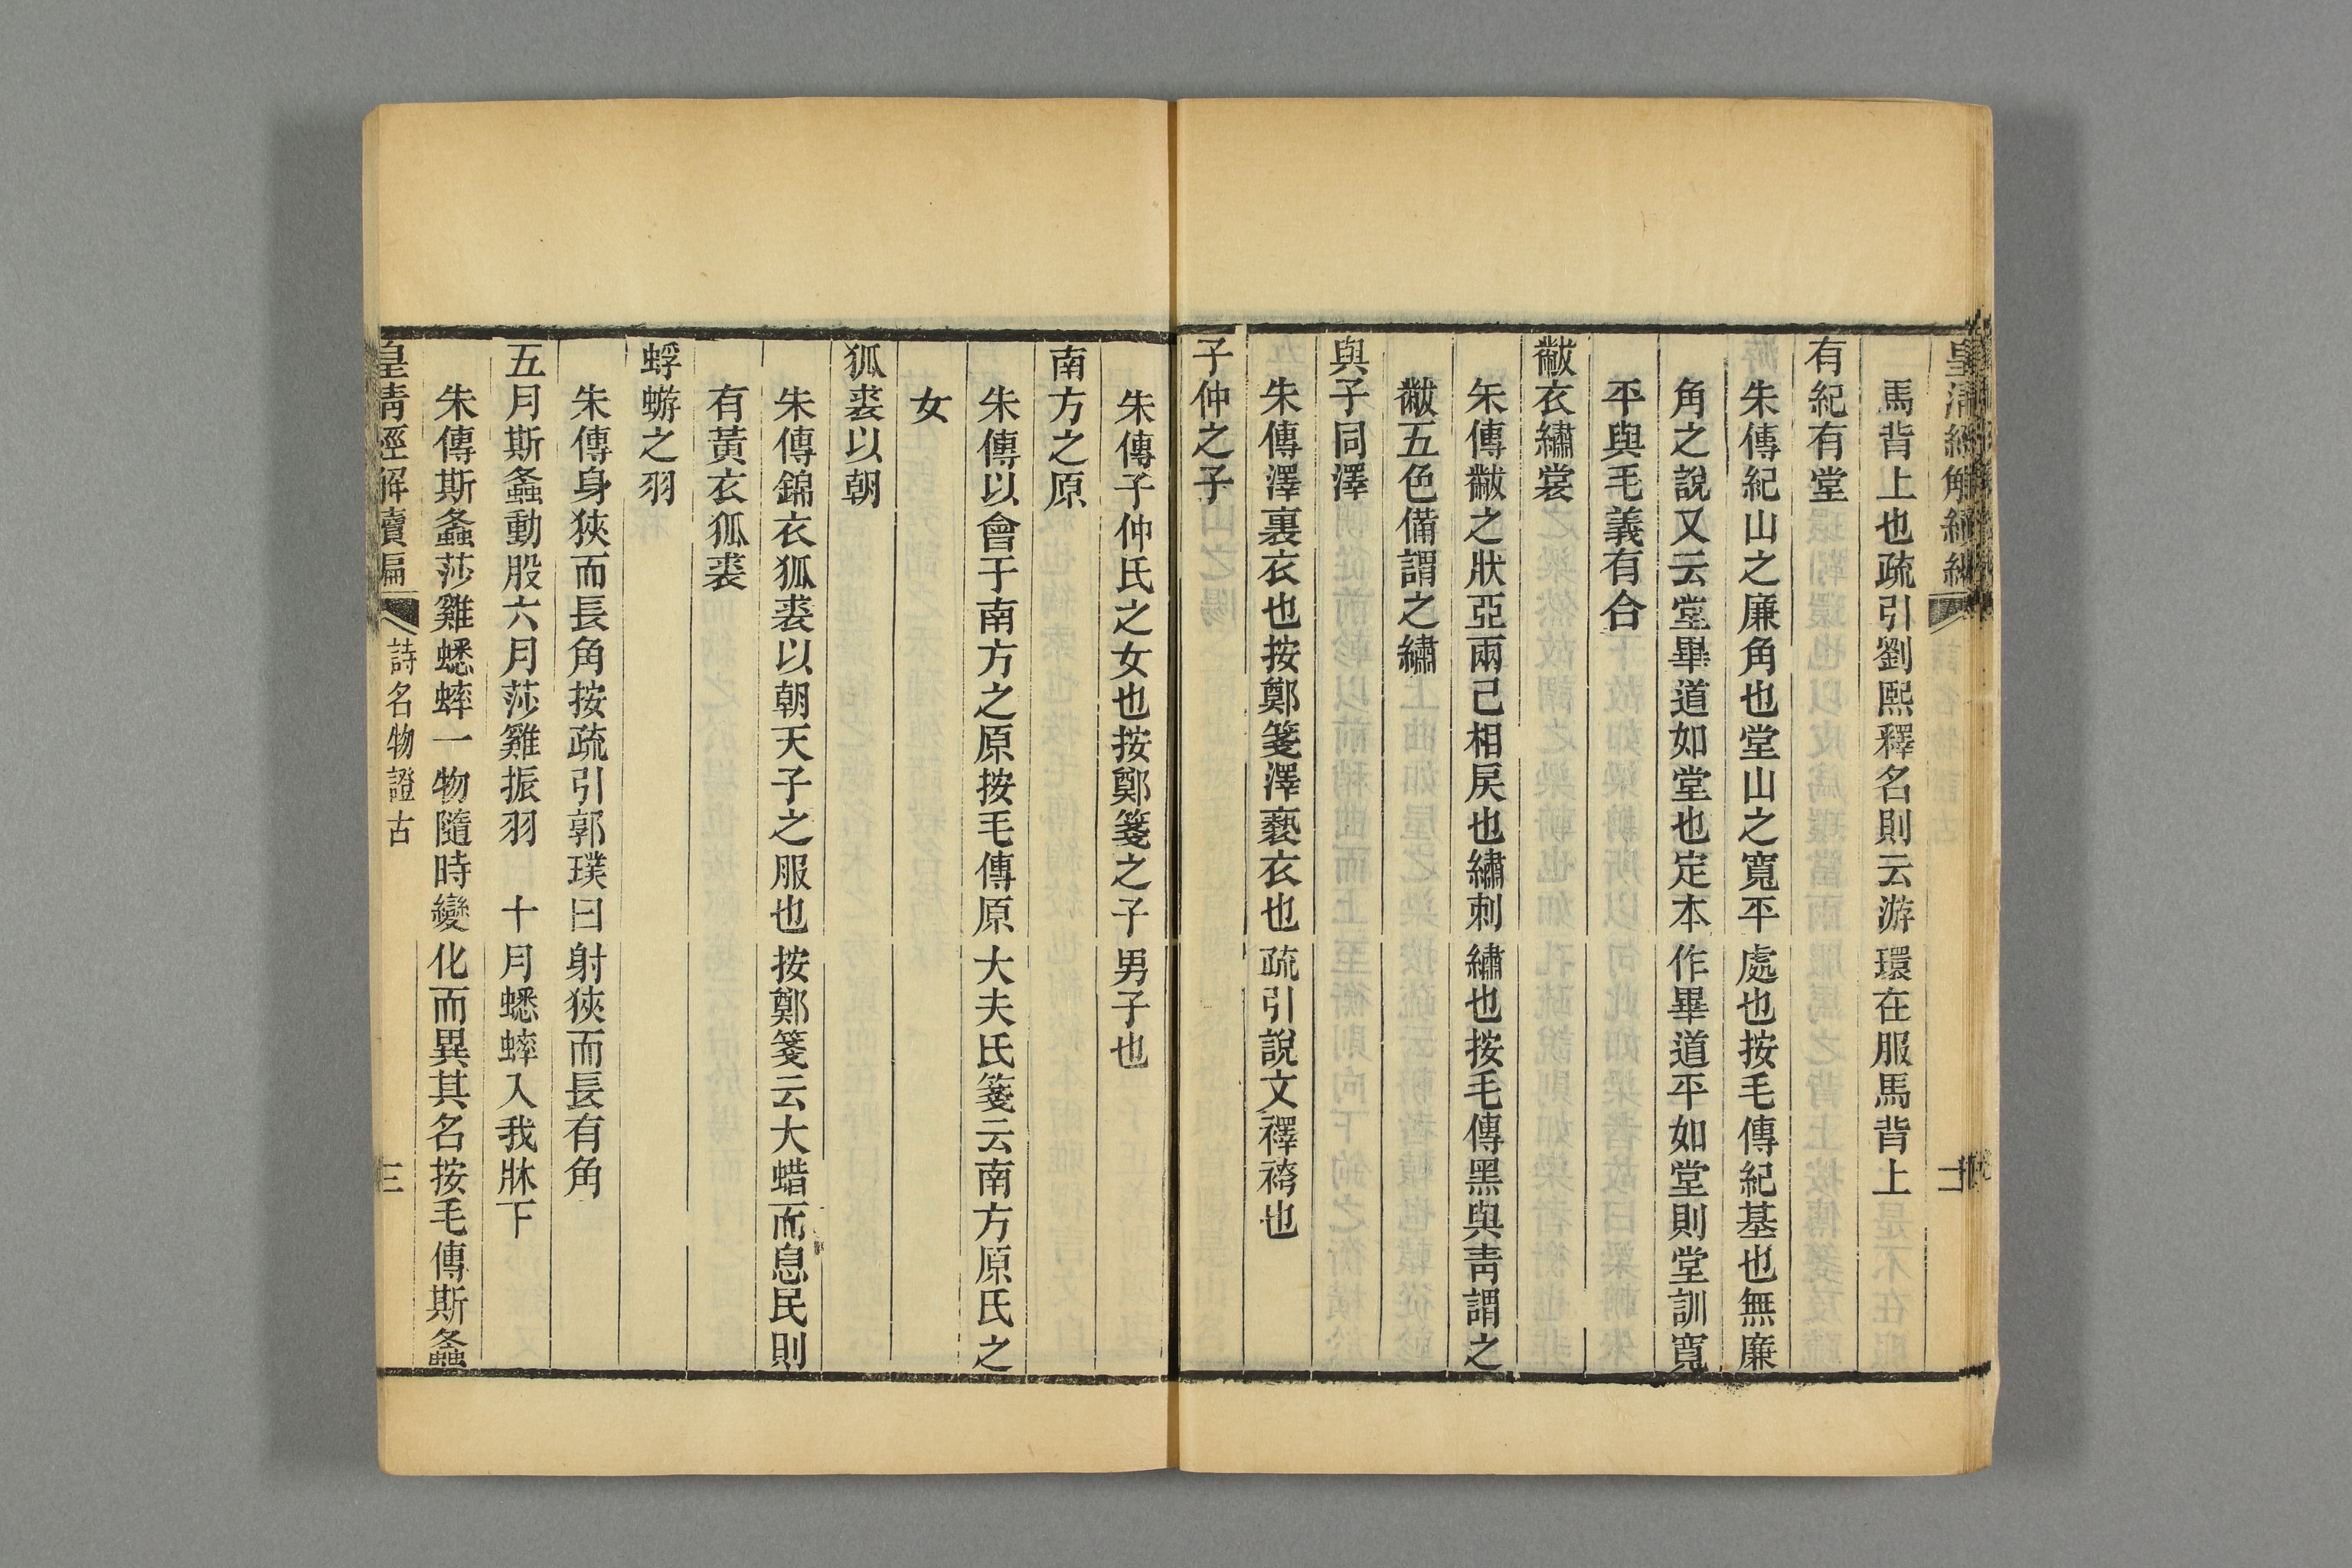 馬背上也疏引劉熙釋名則云游環在服馬背上
有紀有堂
朱傳紀山之廉角也堂山之寬平處也按毛傳紀基也無廉
角之說又云堂畢道如堂也定本作畢道平如堂則堂訓寬
平與毛義有合
黻衣繡裳
朱傳黻之狀亞兩己相戾也繡刺繡也按毛傳黑與靑謂之
黻五色備謂之繡
與子同澤
朱傳澤裏衣也按鄭箋澤褻衣也疏引說文襗袴也
子仲之子
朱傳子仲氏之女也按鄭箋之子男子也
南方之原
朱傳以會于南方之原按毛傳原大夫氏箋云南方原氏之
女
狐裘以朝
朱傳錦衣狐裘以朝天子之服也按鄭箋云大蜡而息民則
有黃衣狐裘
蜉蝣之羽
朱傳身狹而長角按疏引郭璞曰身狹而長有角
五月斯螽動股六月莎雞振羽 十月蟋蟀入我牀下
朱傳斯螽莎雞蟋蟀一物隨時變化而異其名按毛傳斯螽
皇清經解續編 詩名物證古 三